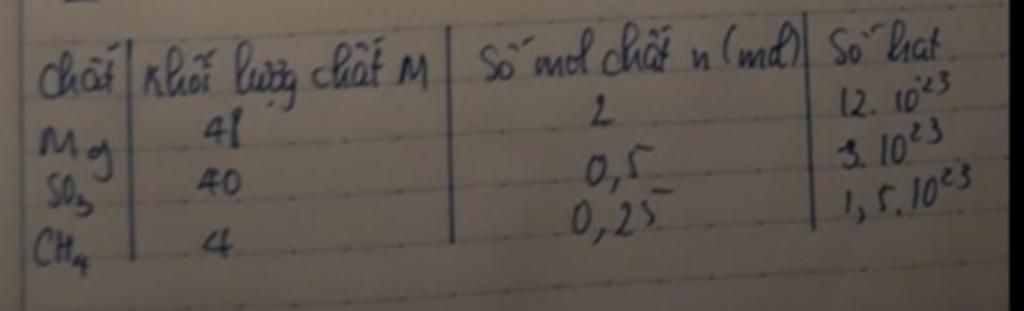 Chất Khối lượng chất M Số mol chất n (mol) Số hạt
Mg 48 2 12. 10²³
SO₃ 40 0,5 3. 10²³
CH₄ 4 0,25 1,5.10²³